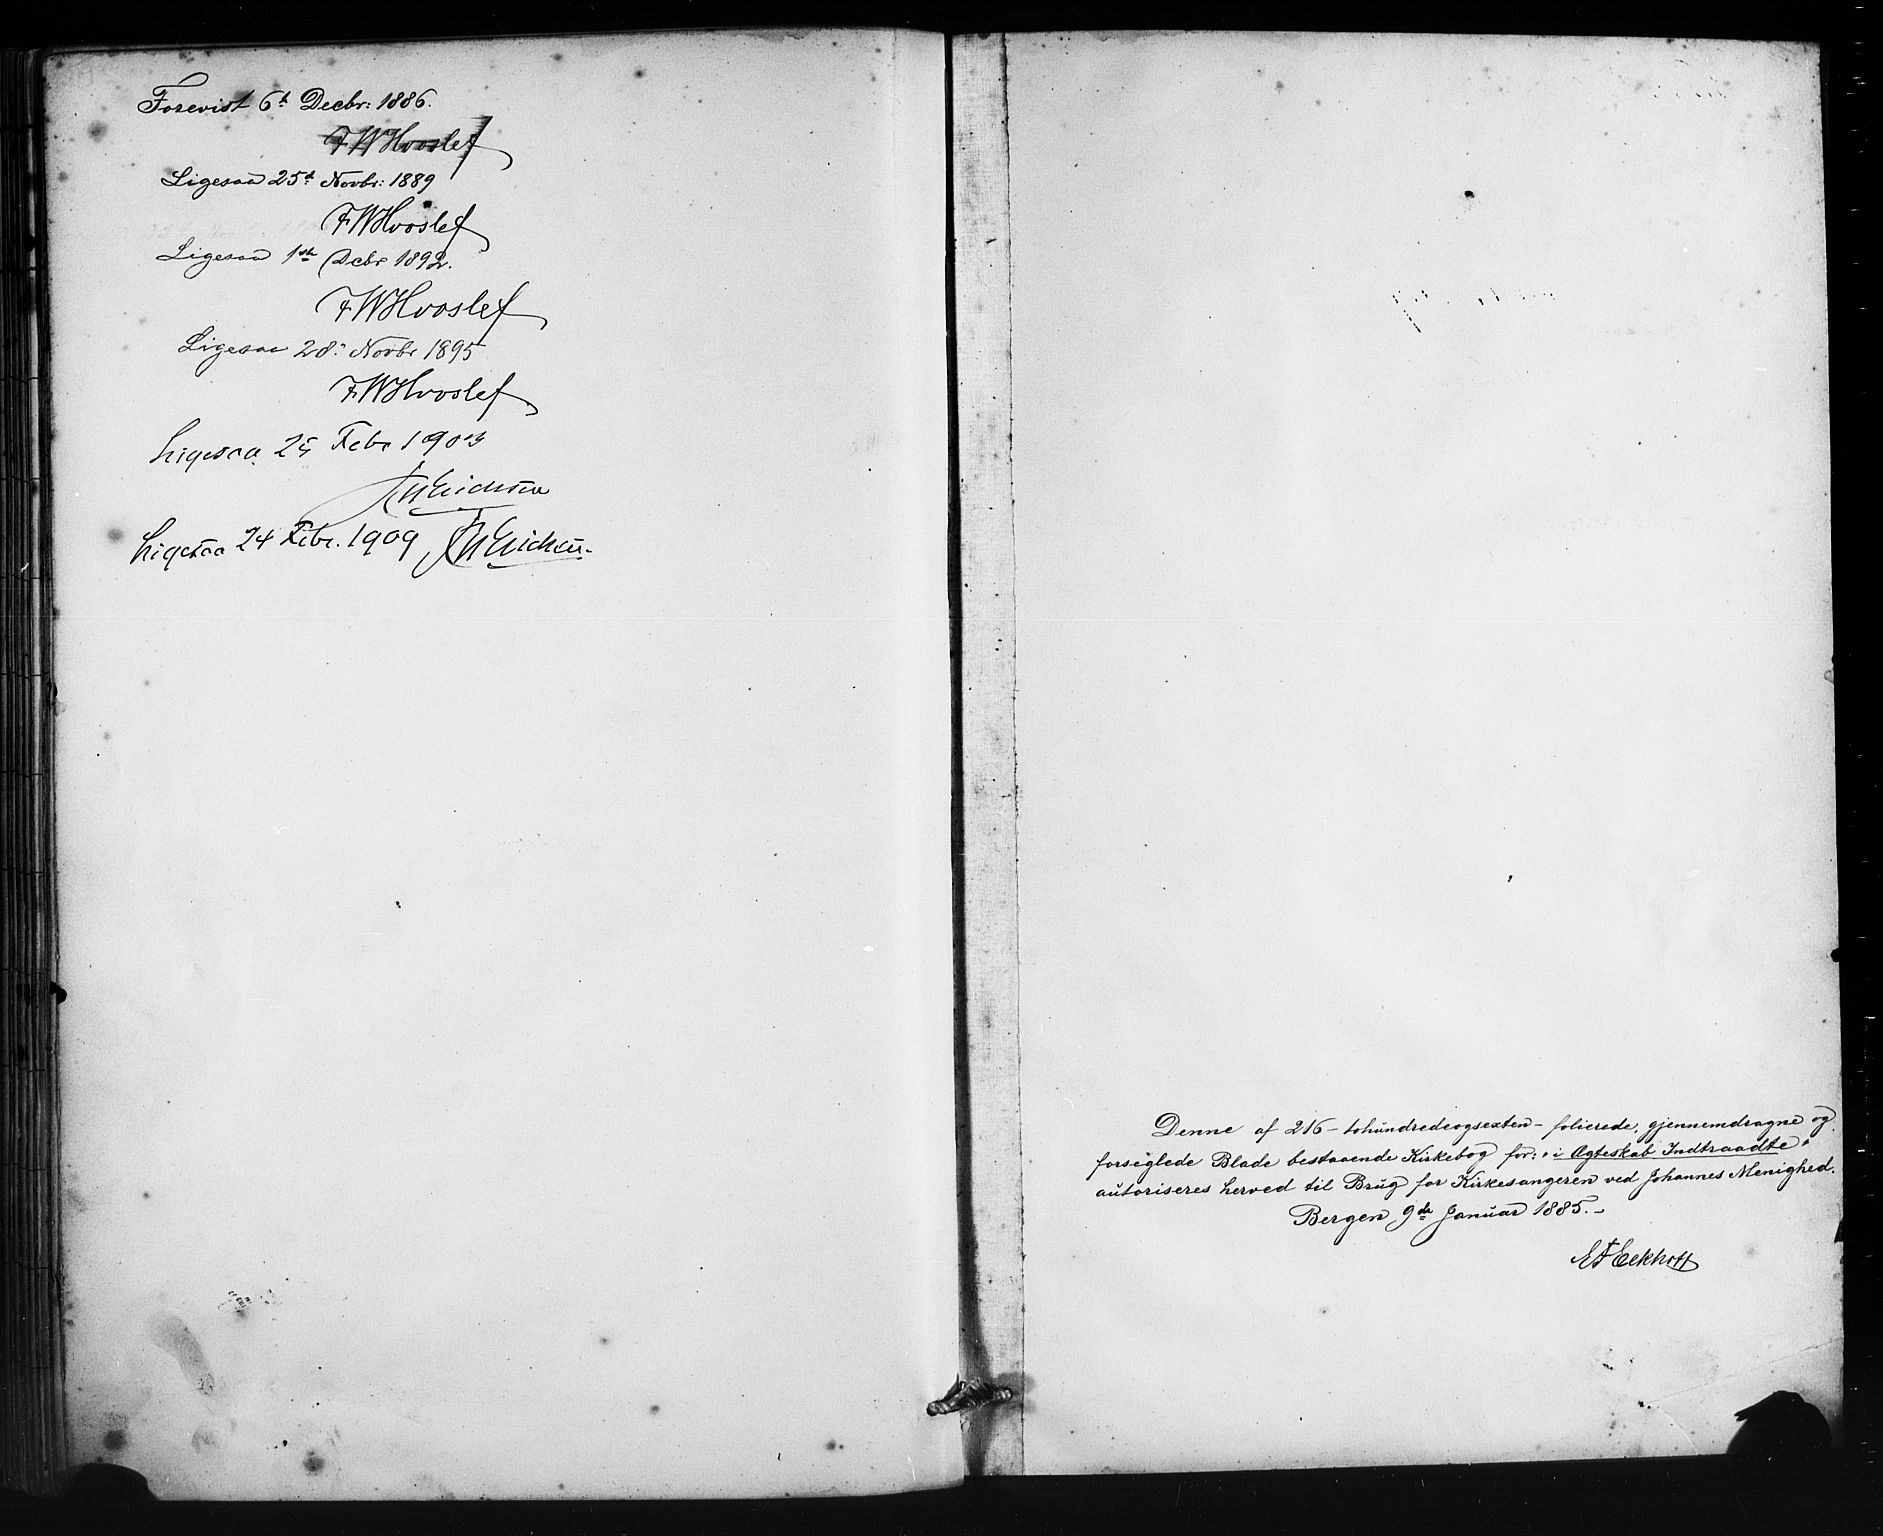 Forevist 6te Decbr: 1886.
FWHvoslef
Ligesaa 25de Novbr: 1889
FWHvoslef
Ligesaa 1ste Decbr 1892.
FWHvoslef
Ligesaa 28: Novbr 1895
FWHvoslef
Ligesaa 25 Febr 1903
Ligesaa 24 Febr. 1909
Denne af 216 - tohundredeogsexten - folierede, gjennemdragne og
forseglede Blade bestaaende Kirkebog for: "i Ægteskab Indtraadte"
autoriseres herved til Brug for Kirkesangeren ved Johannes Menighed.
Bergen 9de Januar 1885.-
Eckhoff